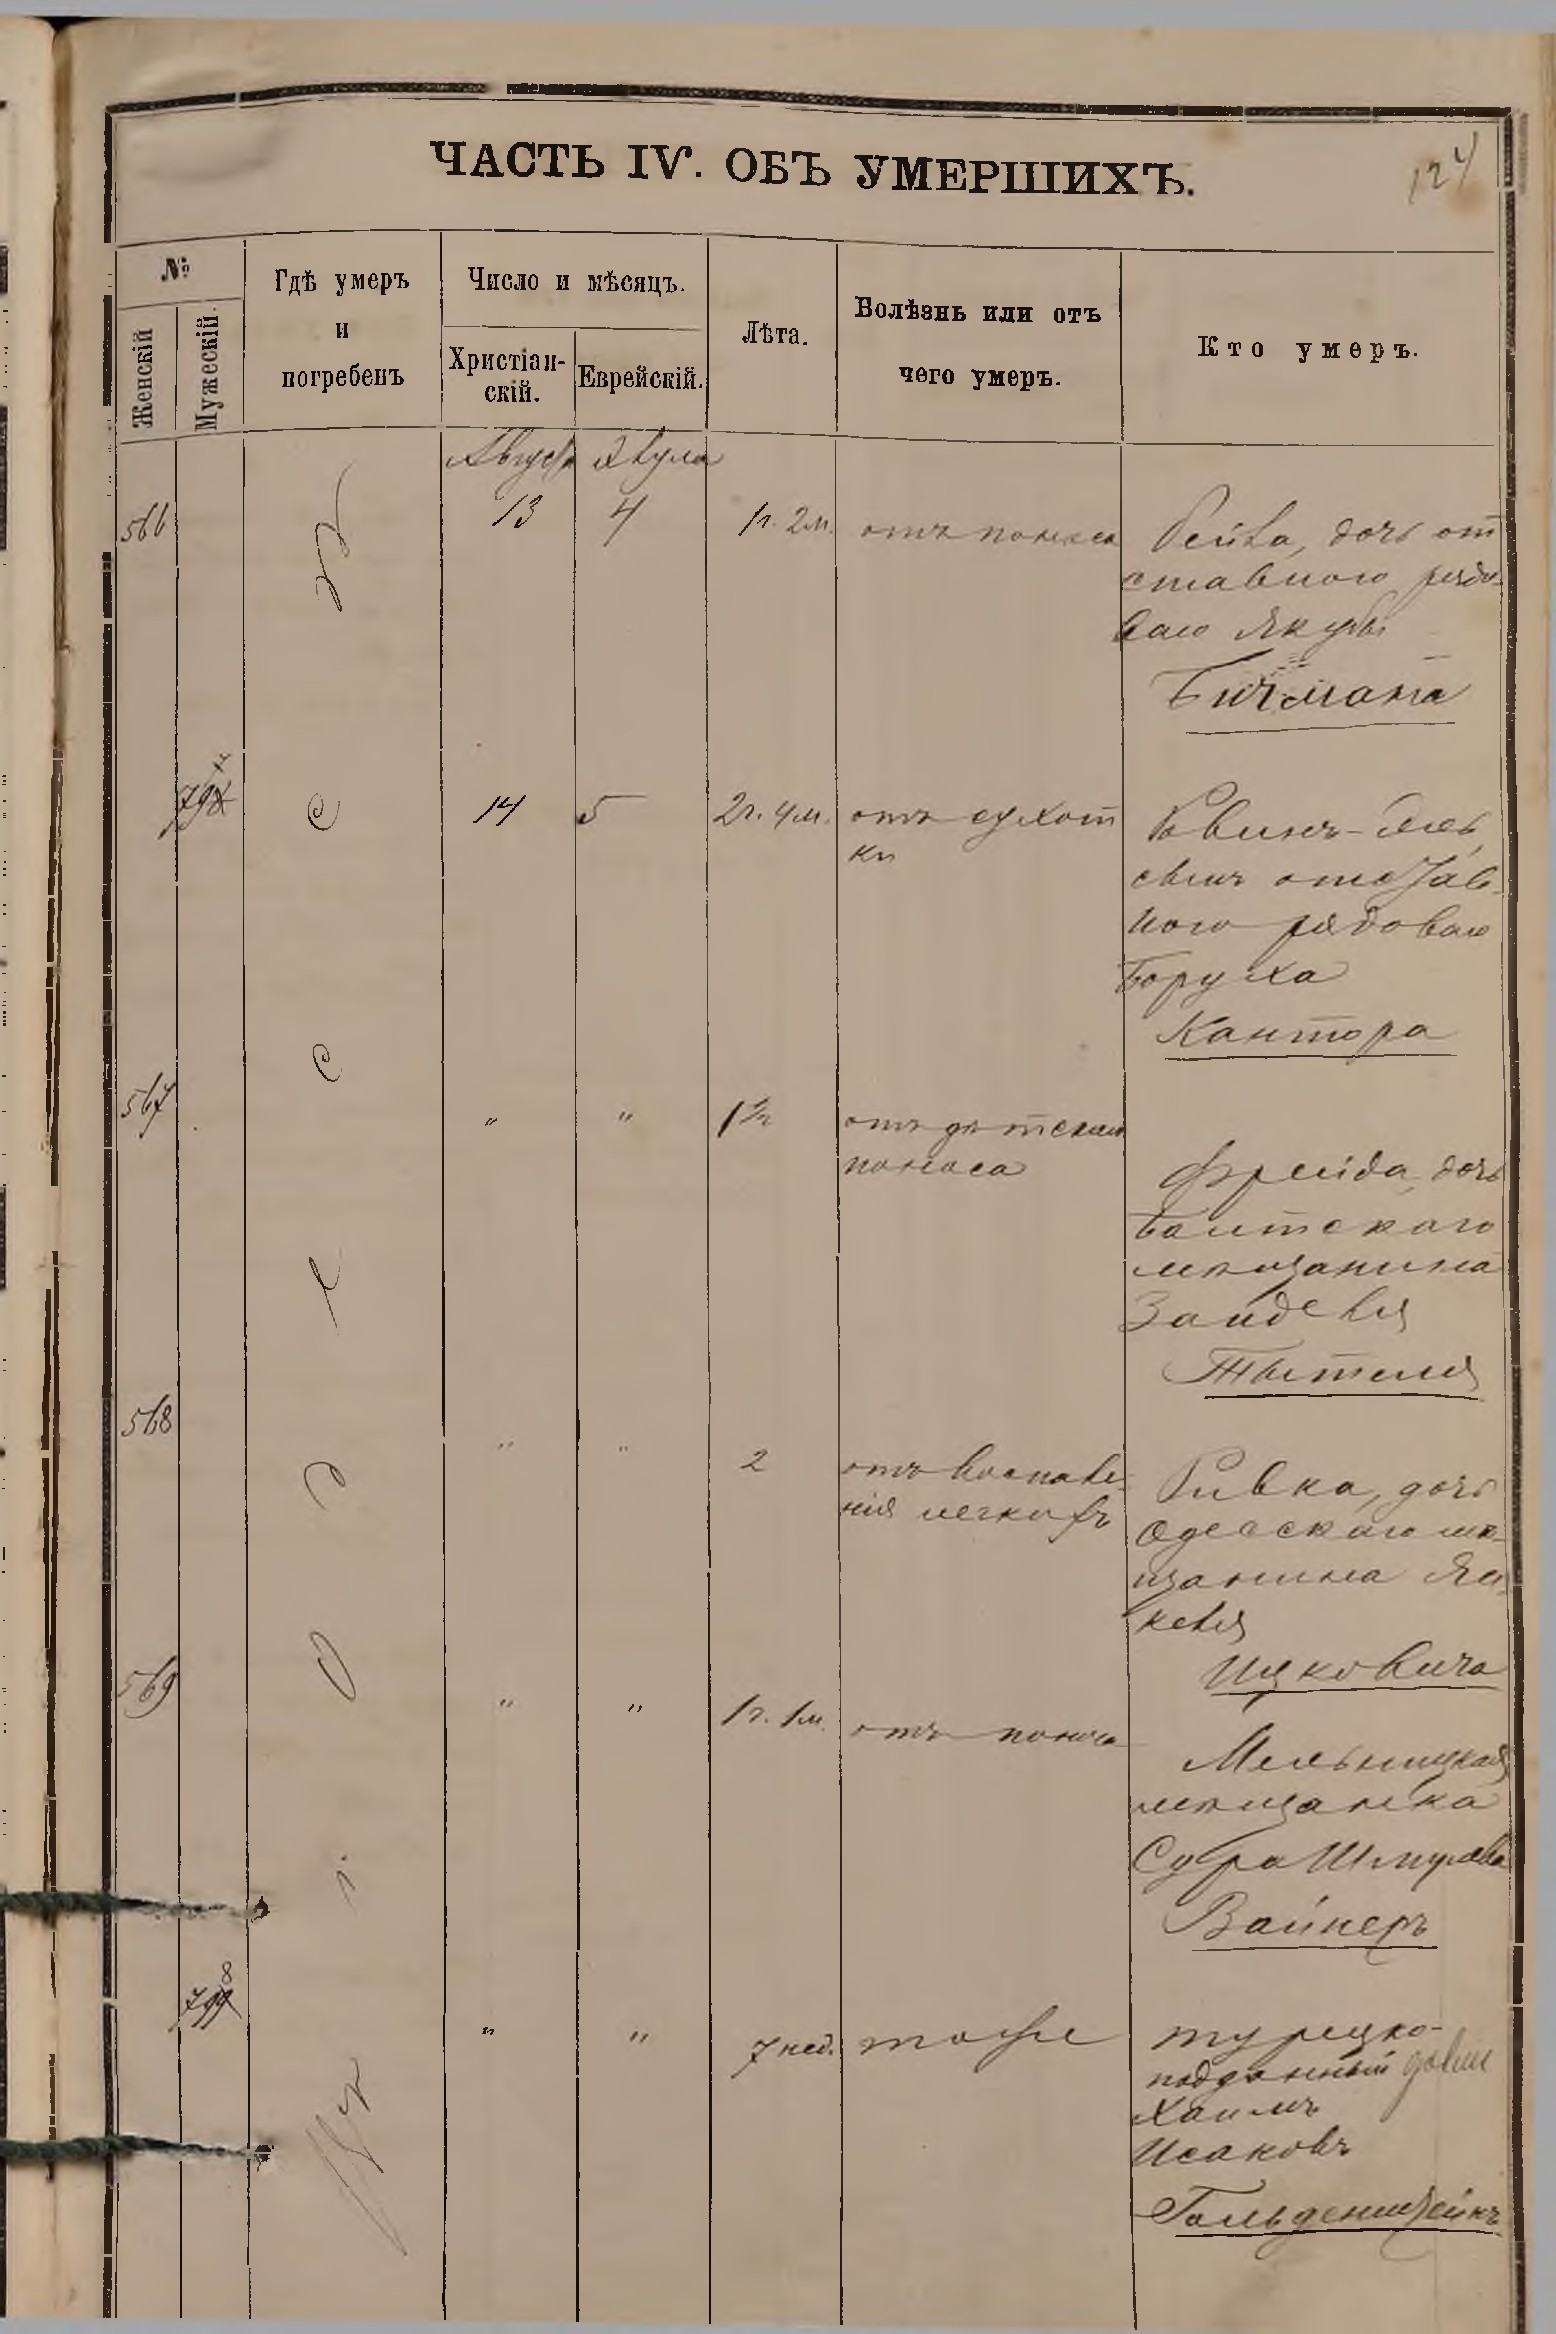 124
ЧАСТЬ IV. ОБЪ УМЕРШИХЪ.
№
Женскій
Мужескій.
Гдѣ умеръ
и
погребенъ
Число и мѣсяцъ.
Христіан-
скій.
Еврейскій.
Лѣта.
Болѣзнь или отъ
чего умеръ.
Кто умеръ.
Августа
566
13
4
1г. 2м.
отъ поноса
дочь от
ставного рядо-
ваго
14
5
2г. 4м.
отъ сухот
ки
сынъ отстав-
ного рядоваго
Боруха
Кантора
567
"
"
отъ дѣтскаго
поноса
Фрейда, дочь
Балтскаго
мѣщанина
Зайделя
568
"
"
2
отъ воспале-
нія легкихъ
Ривка, дочь
Одесскаго мѣ-
щанина Ян-
келя
Ицковича
569
"
"
1г. 1м.
отъ поноса
мѣщанка
Сура Шмулева
Вайнеръ
"
"
7 нед.
тоже
турецко-
подданный
Хаимъ
Исаковъ
Гольденштейнъ